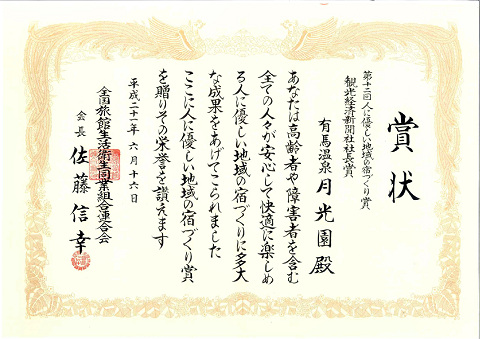 賞状
第十二回人に優しい地域の宿づくり賞
観光経済新聞社社長賞
有馬温泉 月光園殿
あなたは高齢者や障害者を含む
全ての人々が安心して快適に楽しめ
る人に優しい地域の宿づくりに多大
な成果をあげてこられました
ここに人に優しい地域の宿づくり賞
を贈りその栄誉を讃えます
平成二十一年六月十六日
全国旅館生活衛生同業組合連合会
会長 佐藤信幸